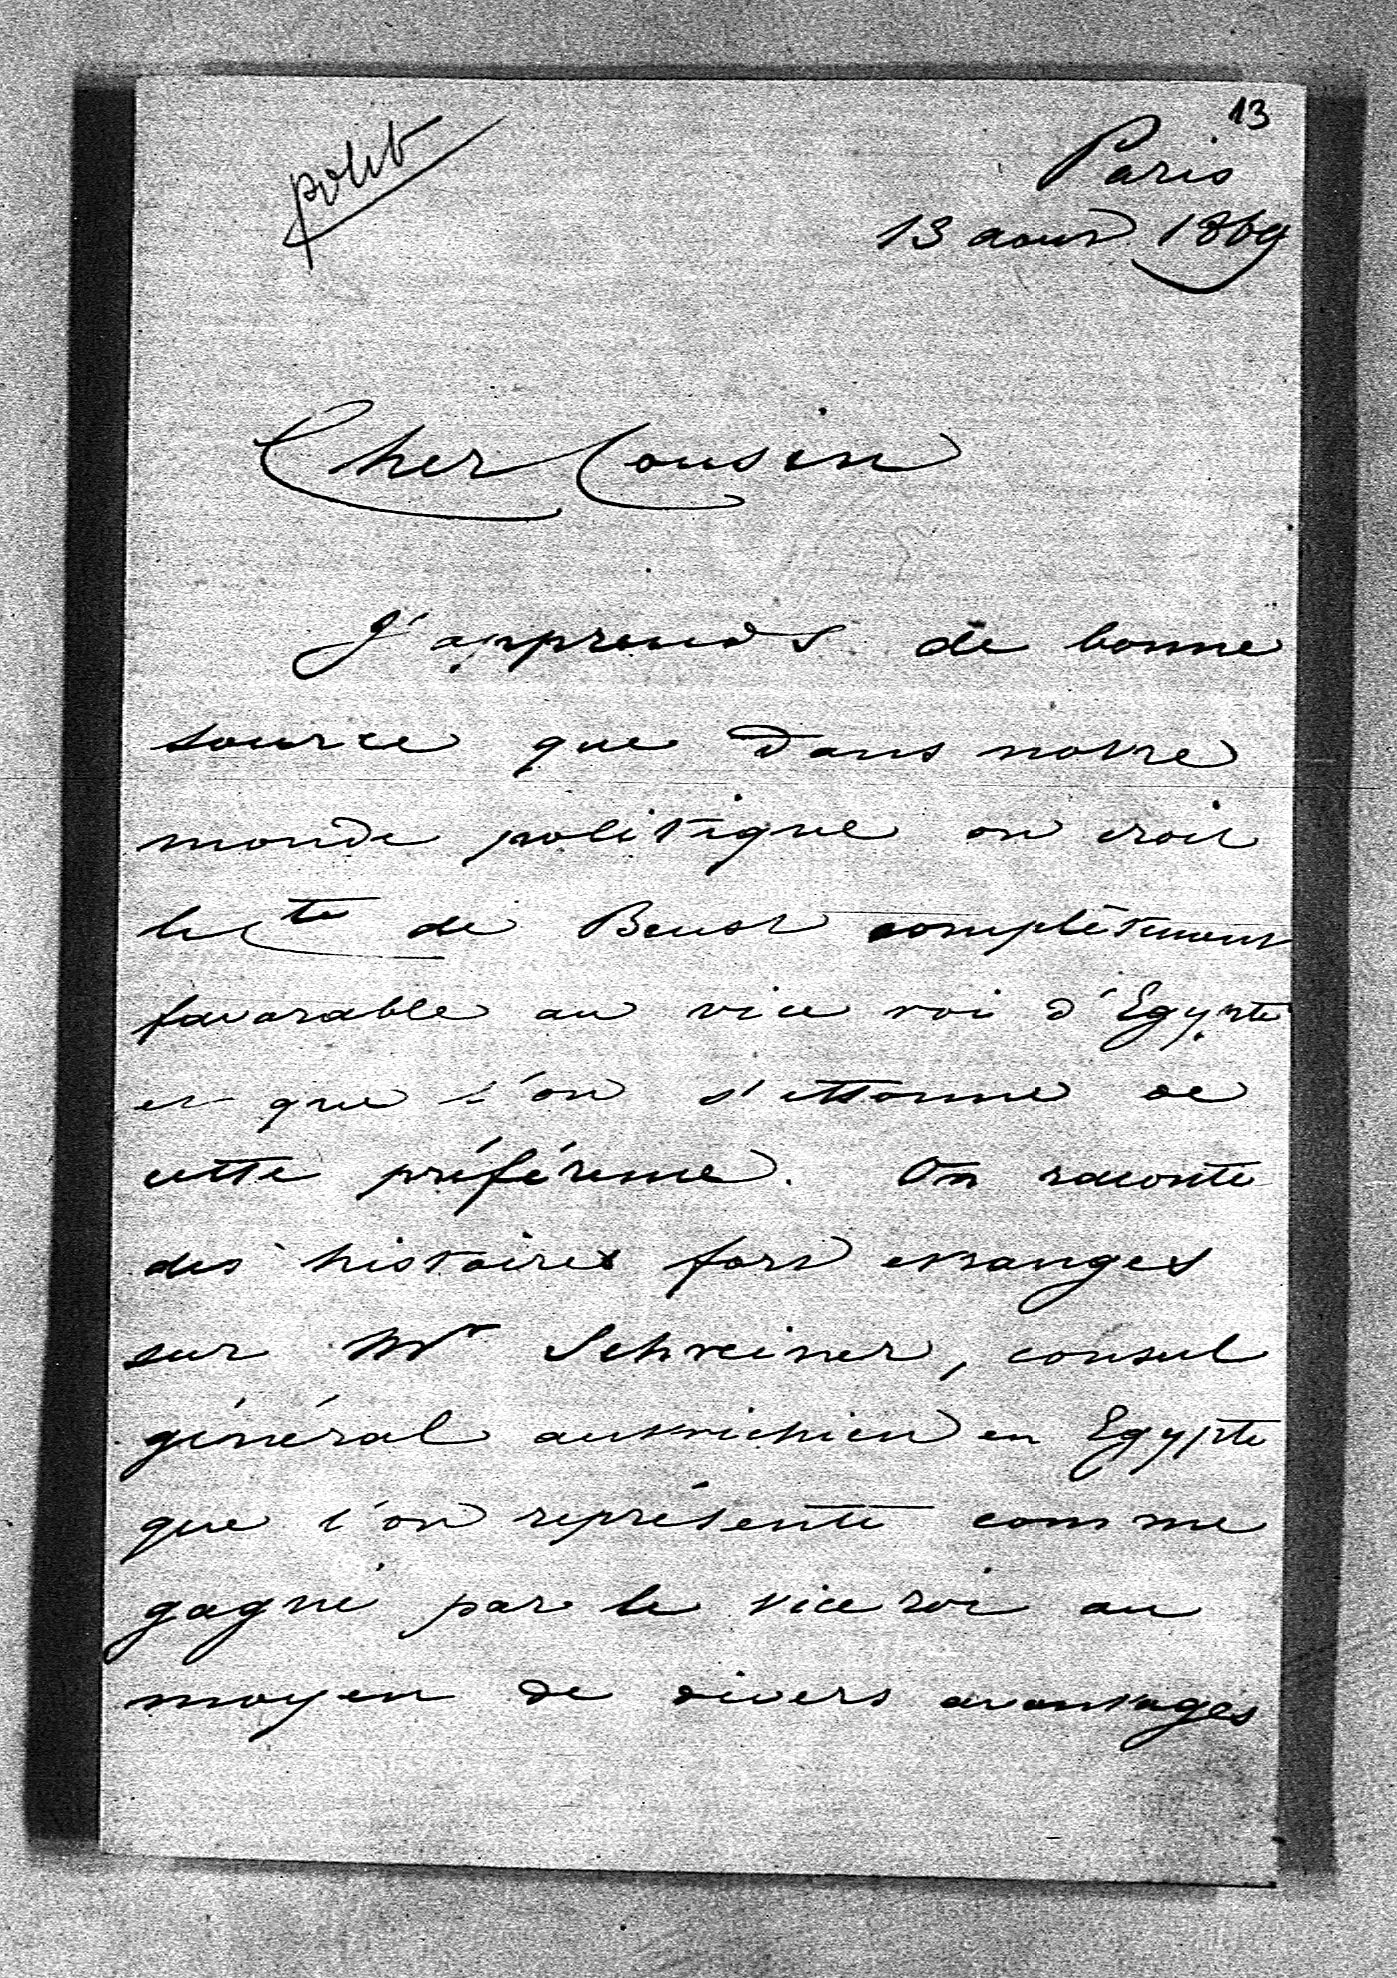 13
polit
Paris
13 aout 1869
Cher Cousin
J'apprends de bonne
source que dans notre
monde politique on croit
le Cte de Beust complètement
favorable au vice roi d'Egypte
et que l'on s'ettonne de
cette préférence. On raconte
des histoires fort etranges
sur Mr Schreiner, consul
général autrichien en Egypte
que l'on représente comme
gagné par le vice roi au
moyen de divers avantages